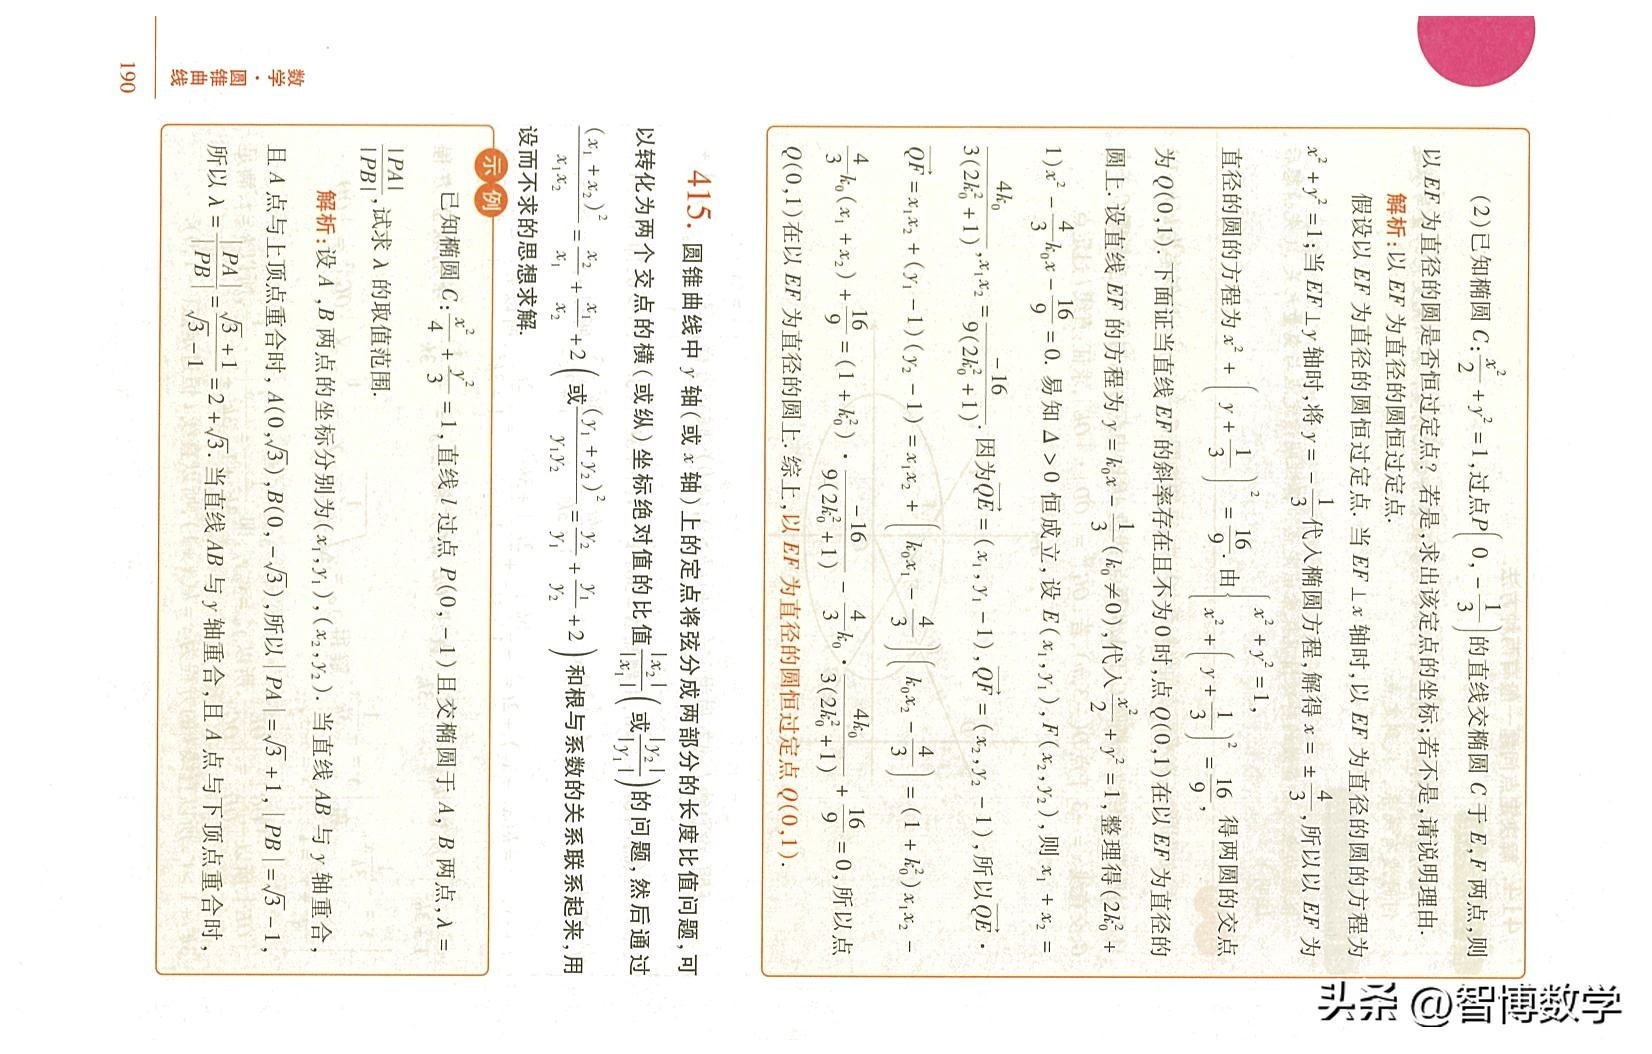 (2)已知椭圆 C: x²/2 + y² = 1,过点P(0, -1/3)的直线交椭圆 C 于 E,F 两点,则
以 EF 为直径的圆是否恒过定点? 若是,求出该定点的坐标;若不是,请说明理由.
解析:以 EF 为直径的圆恒过定点.
假设以 EF 为直径的圆恒过定点. 当 EF⊥x 轴时,以 EF 为直径的圆的方程为
x² + y² = 1;当 EF⊥y 轴时,将 y = -1/3 代入椭圆方程,解得 x = ±4/3,所以以 EF 为
直径的圆的方程为 x² + (y + 1/3)² = 16/9. 由{x² + y² = 1, x² + (y + 1/3)² = 16/9, 得两圆的交点
为 Q(0,1). 下面证当直线 EF 的斜率存在且不为 0 时,点 Q(0,1)在以 EF 为直径的
圆上. 设直线 EF 的方程为 y = k₀x - 1/3 (k₀≠0),代入 x²/2 + y² = 1,整理得(2k₀² +
1)x² - 4/3 k₀x - 16/9 = 0. 易知 Δ > 0 恒成立,设 E(x₁,y₁),F(x₂,y₂),则 x₁ + x₂ =
4k₀/3(2k₀² + 1), x₁x₂ = -16/9(2k₀² + 1). 因为QE = (x₁,y₁ - 1),QF = (x₂,y₂ - 1),所以QE ·
QF = x₁x₂ + (y₁ - 1)(y₂ - 1) = x₁x₂ + (k₀x₁ - 4/3)(k₀x₂ - 4/3) = (1 + k₀²)x₁x₂ -
4/3 k₀(x₁ + x₂) + 16/9 = (1 + k₀²) · -16/9(2k₀² + 1) - 4/3 k₀ · 4k₀/3(2k₀² + 1) + 16/9 = 0,所以点
Q(0,1)在以 EF 为直径的圆上. 综上,以 EF 为直径的圆恒过定点 Q(0,1).
415. 圆锥曲线中 y 轴(或 x 轴)上的定点将弦分成两部分的长度比值问题,可
以转化为两个交点的横(或纵)坐标绝对值的比值|x₂|/|x₁|(或|y₂|/|y₁|)的问题,然后通过
(x₁ + x₂)²/x₁x₂ = x₂/x₁ + x₁/x₂ + 2(或(y₁ + y₂)²/y₁y₂ = y₂/y₁ + y₁/y₂ + 2)和根与系数的关系联系起来,用
设而不求的思想求解.
示例
已知椭圆 C: x²/4 + y²/3 = 1,直线 l 过点 P(0, -1)且交椭圆于 A,B 两点,λ =
|PA|/|PB|,试求 λ 的取值范围.
解析:设 A,B 两点的坐标分别为(x₁,y₁),(x₂,y₂). 当直线 AB 与 y 轴重合,
且 A 点与上顶点重合时,A(0,√3),B(0, -√3),所以|PA| = √3 + 1,|PB| = √3 - 1,
所以 λ = |PA|/|PB| = √3 + 1/√3 - 1 = 2 + √3. 当直线 AB 与 y 轴重合,且 A 点与下顶点重合时,
数学·圆锥曲线
190
头条 @智博数学